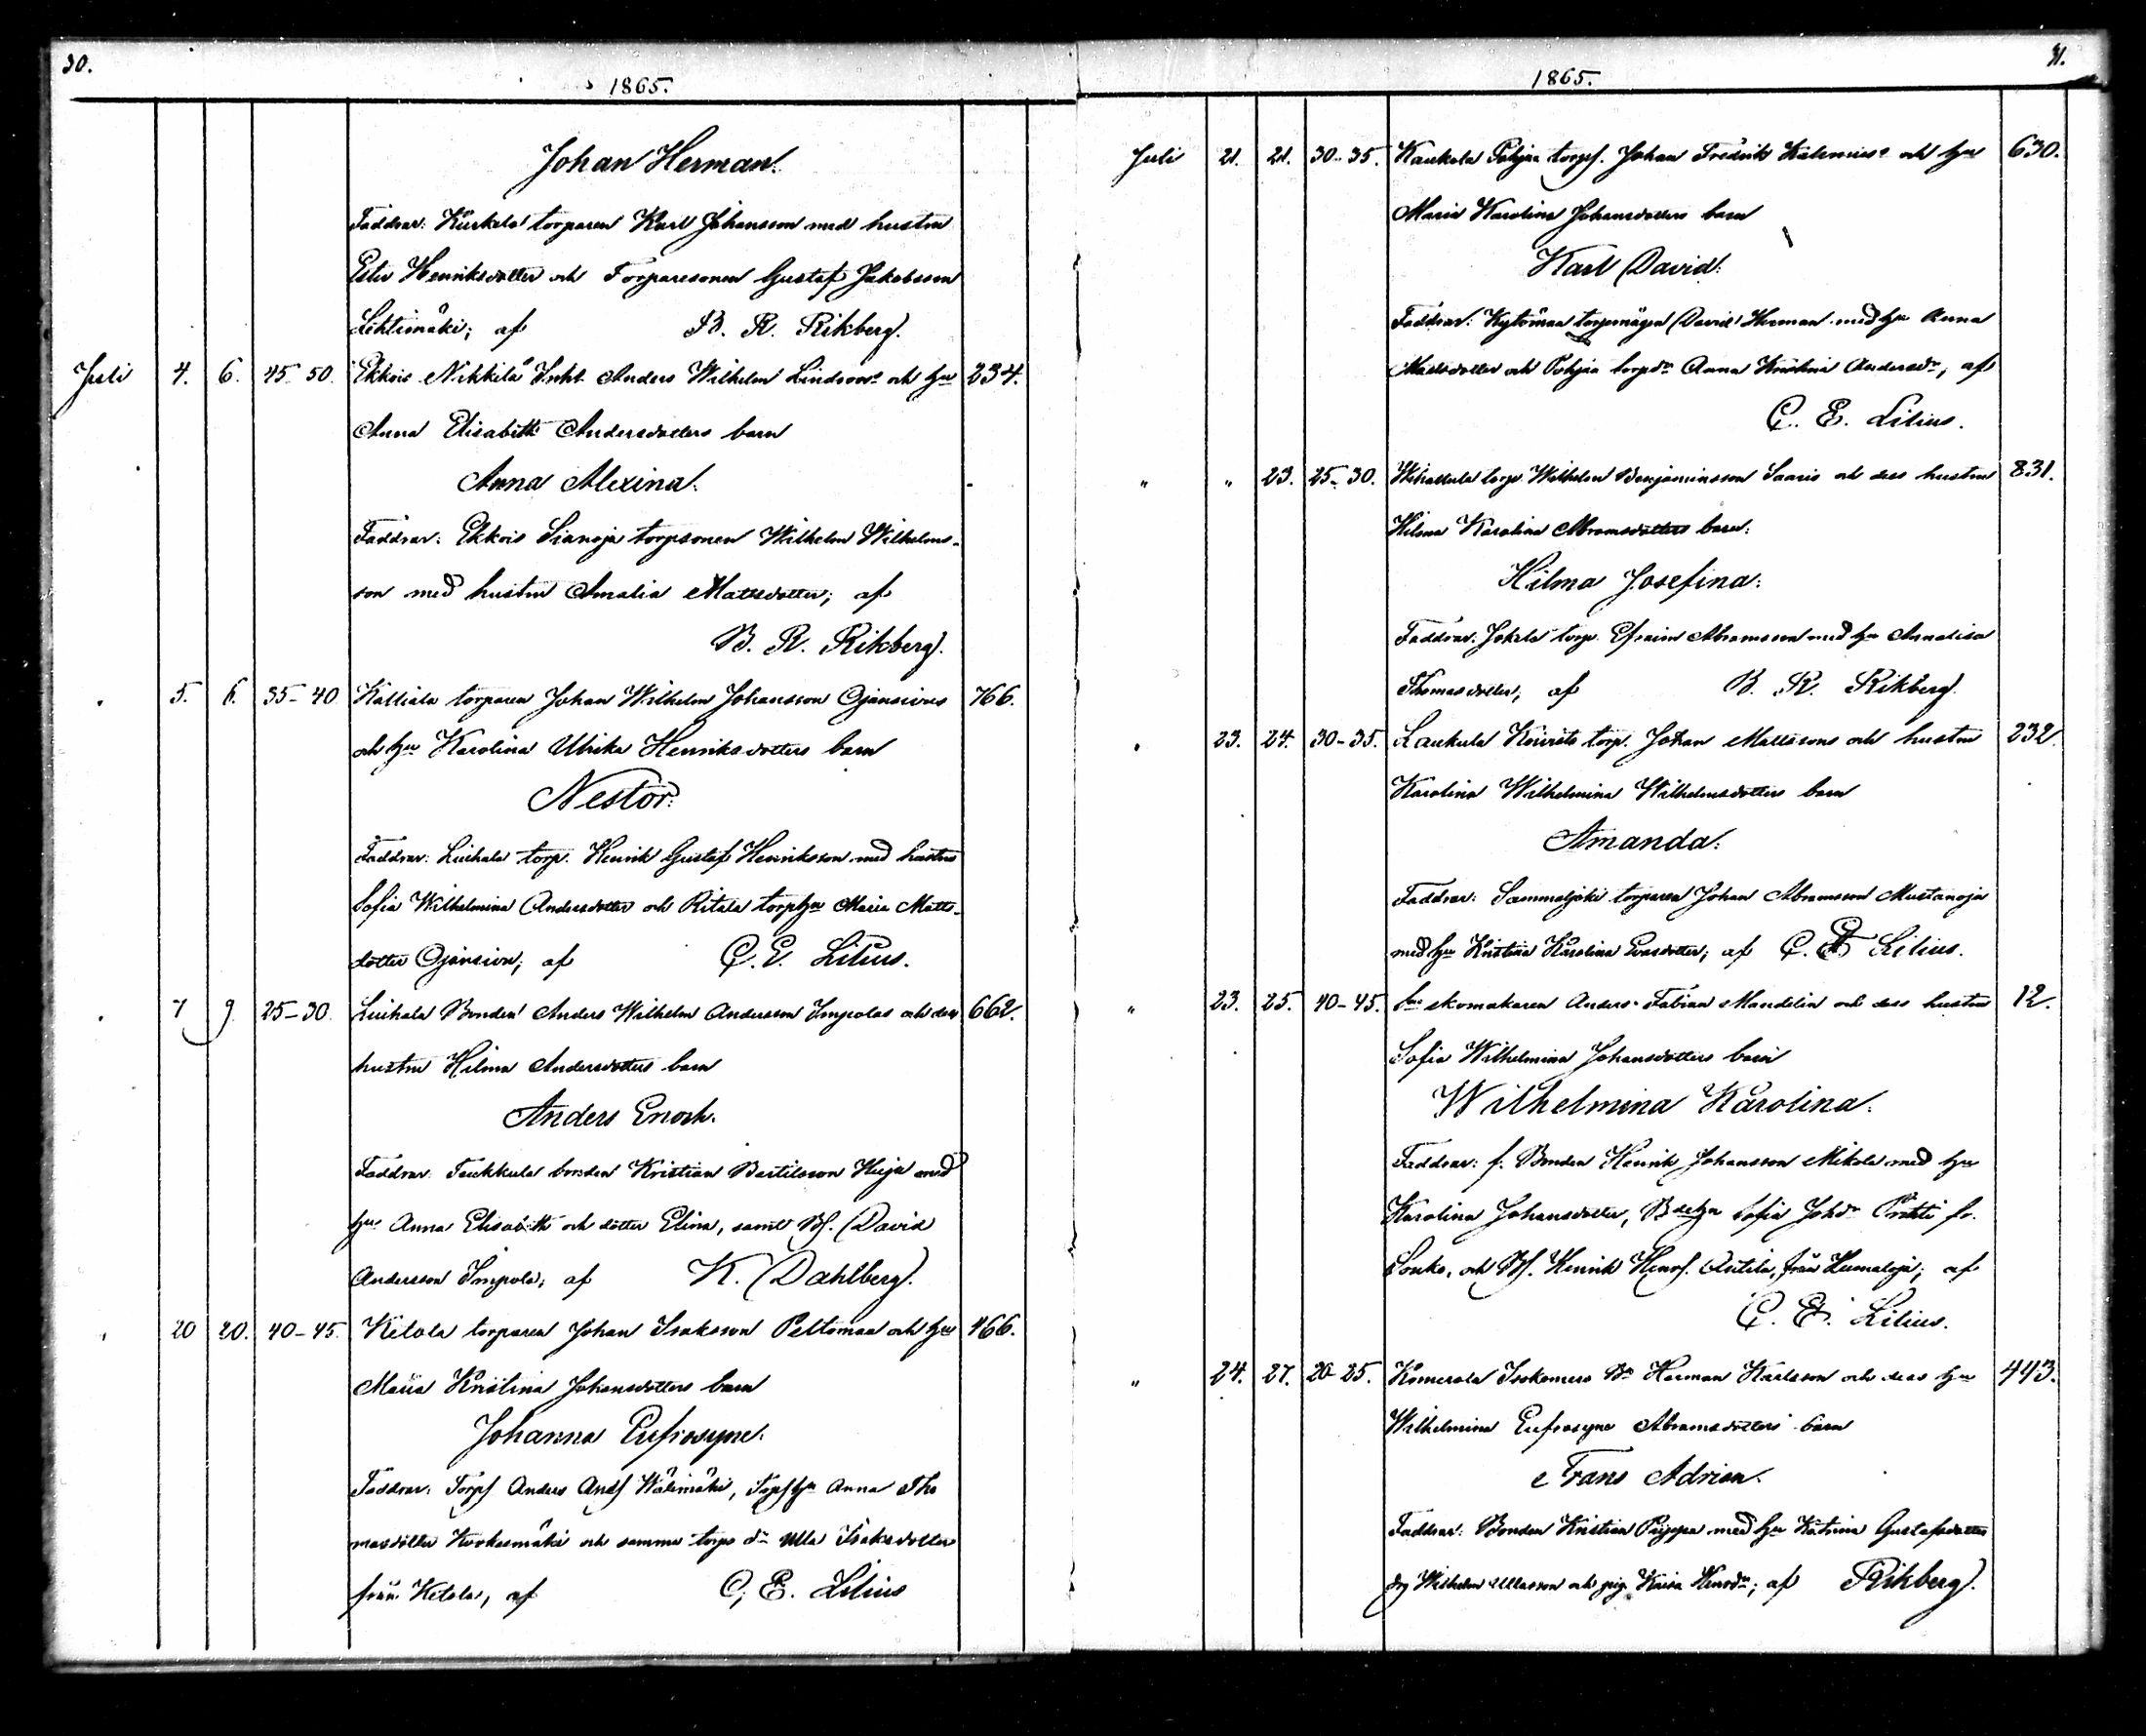 30.
1865.
Johan Herman.
Faddrar: Kurkela torparen Karl Johansson med hustru
Ester Henriksdotter och Torparesonen Gustaf Jakobsson
Lehtimäki; af B. R. Rikberg.
Juli 4. 6. 45-50. Ekkois Nikkilä Inht. Anders Wilhelm Lindroos och hu 234.
Anna Elisabeth Andersdotters barn
Anna Alexina.
Faddrar: Ekkois Sianoja torpsonen Wilhelm Wilhelms-
son med hustru Amalia Mattsdotter; af
B. R. Rikberg.
" 5. 6. 35-40. Kalliala torparen Johan Wilhelm Johansson Ojansivus 766.
och hu Karolina Ulrika Henriksdotters barn
Nestor.
Faddrar: Liuhala torp. Henrik Gustaf Henriksson med hustru
Sofia Wilhelmina Andersdotter och Ritala torphu Maria Matts-
dotter Ojansivu; af C. E. Lilius.
" 7 9. 25-30. Liuhala Bonden Anders Wilhelm Andersson Impolas och dess 662.
hustru Hilma Andersdotters barn
Anders Enoch.
Faddrar: Taukkula bonden Kristian Bertilsson Heja med
hu Anna Elisabeth och dotter Elina, samt Bs. David
Andersson Impola; af K. Dahlberg.
" 20 20. 40-45. Ketola torparen Johan Isaksson Peltomaa och hu 466.
Maria Kristina Johansdotters barn
Johanna Eufrosyne.
Faddrar: Torps Anders Ands Wälimäki, Torps hu Anna Tho
masdotter Korkesmäki och samma torps dr Ulla Isaksdotter
från Ketola, af C. E. Lilius
31.
1865.
Juli 21. 21. 30-35. Kaukola Pohjan torps. Johan Fredrik Kaleniuss och hu 630.
Maria Karolina Johansdotters barn
Karl David.
Faddrar: Kytömaa torpmågen David Herman med hu Anna
Mattsdotter och Pohjan torpdr Anna Kristina Andersdr; af
C. E. Lilius.
" " 23. 25-30. torp. Wilhelm Benjaminsson Saaris och dess hustru 831.
Hilma Karolina Abramsdotters barn:
Hilma Josefina.
Faddrar: Jokela torp. Efraim Abramsson med hu Annalisa
Thomasdotter, af B. R. Rikberg.
" 23. 24. 30-35. Laukula torp. Johan Mattssons och hustru 232.
Karolina Wilhelmina Wilhelmsdotters barn
Amanda.
Faddrar: Sammaljoki torparen Johan Abramsson Mustanoja
med hu Kristina Karolina Evasdotter; af C. E. Lilius.
" 23. 25. 40-45. skomakaren Anders Fabian Mandelin och dess hustru 12.
Sofia Wilhelmina Johansdotters barn
Wilhelmina Karolina.
Faddrar: f. Bonden Henrik Johansson Mikola med hu
Karolina Johansdotter, Bdehu Sofia Johdr fr.
Sonko, och Bs. Henrik Henrs. Antila, från Humaloja; af
C. E. Lilius.
" 24. 27. 20-25. Komerola Isokomero Bn Herman Karlsson och dess hu 443.
Wilhelmina Eufrosyne Abramsdotters barn
Frans Adrian.
Faddrar: Bonden Kristian Pippa med hu Katrina Gustafsdotter
Wilhelm Ullasson och pig. Kaisa Henrdr; af Rikberg.